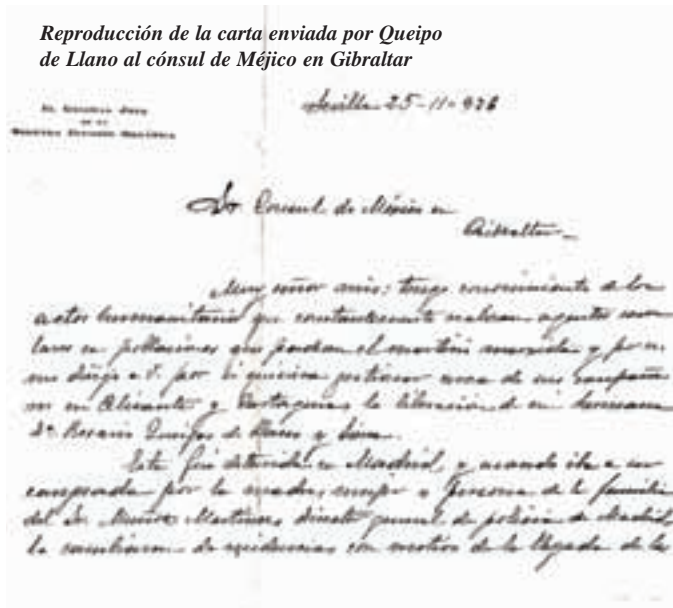 Reproducción de la carta enviada por Queipo
de Llano al cónsul de Méjico en Gibraltar
El General Jefe
del
Ejército
Sevilla 25-11-936
Sr Consul de México en
Gibraltar
Muy señor mio: tengo conocimiento de los
actos humanitarios que constantemente realizan agentes consu
lares en poblaciones que padecen el marxista y por
me dirijo a V. por si quisiera gestionar cerca de sus compañe
ros en Alicante y Cartagena, la liberación de mi hermana
Dª Rosario Queipo de Llano y Sierra.
Esta fué detenida en Madrid, y cuando iba a ser
canjeada por la madre, mujer o persona de la familia
del Sr. Muñoz Martinez, director general de policia de Madrid,
la de residencia con motivo de la llegada de la